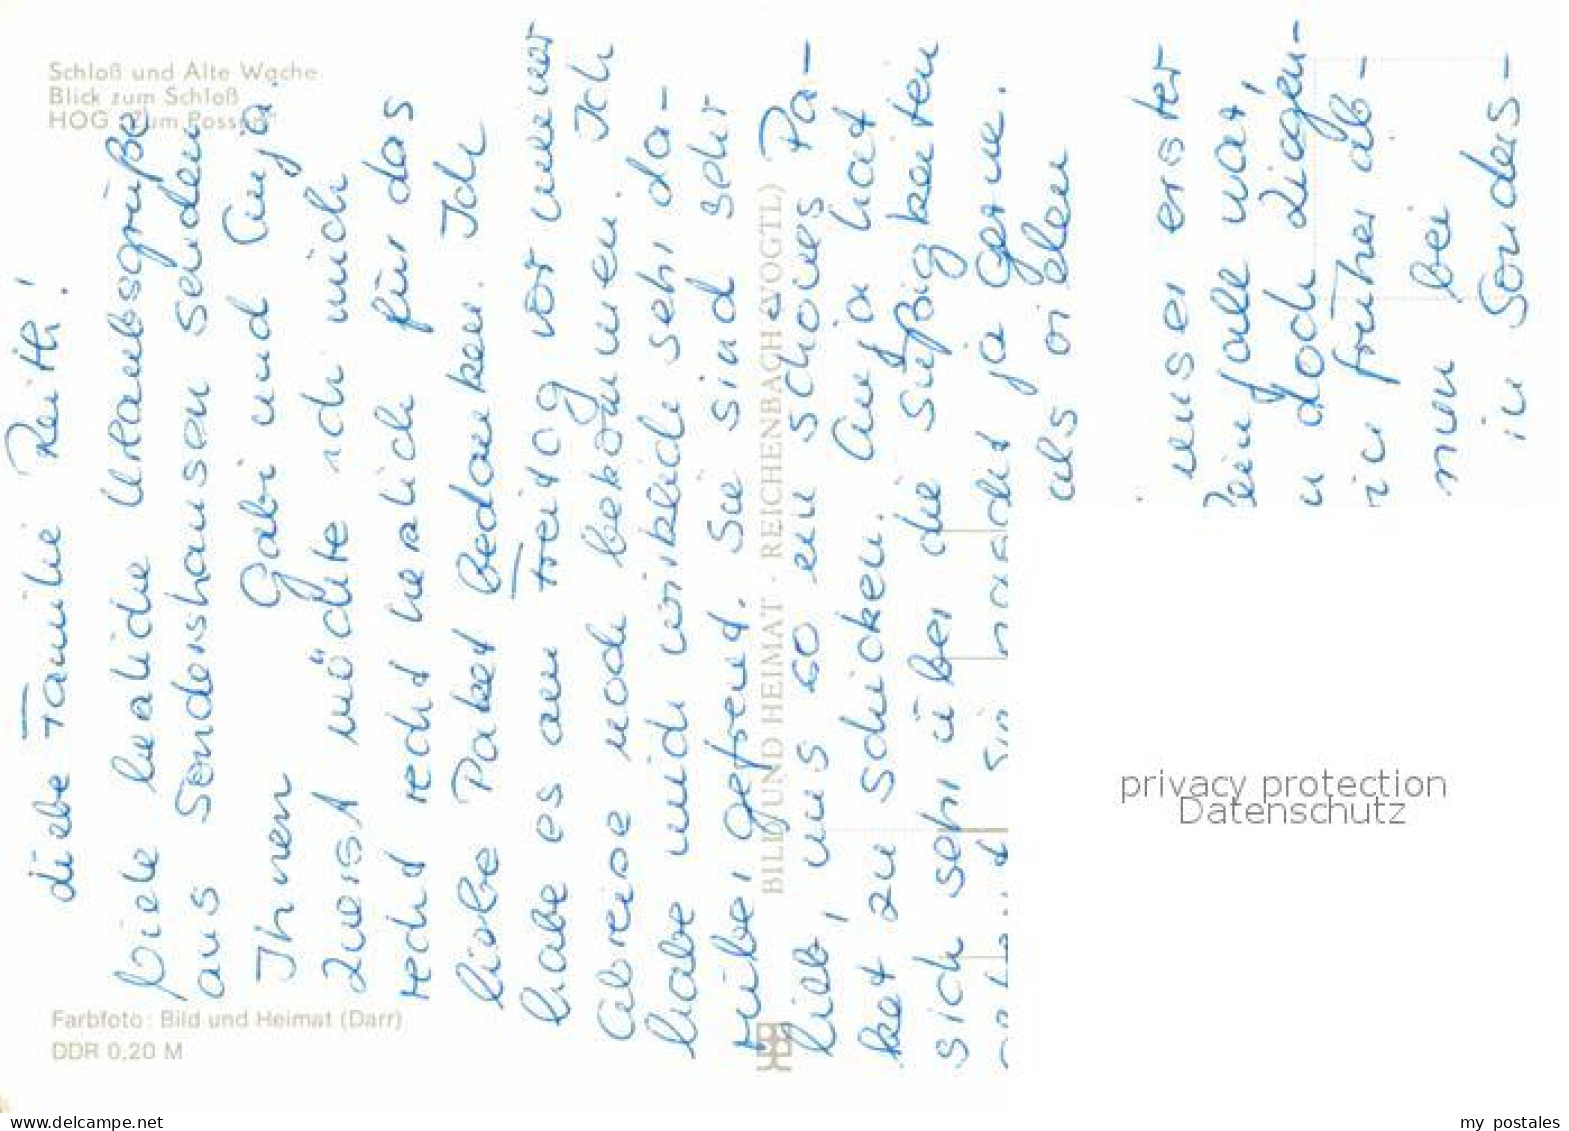 Schloß und Alte Wache
Blick zum Schloß
HOG "Zum Possen"
Liebe Familie Reith!
Viele herzliche Urlaubsgrüße
aus Sondershausen senden
Ihnen Gabi und Anja.
Zuerst möchte ich mich
recht recht herzlich für das
liebe Paket bedanken. Ich
habe es am Freitag vor meiner
Abreise noch bekommen. Ich
habe mich wirklich sehr da-
rüber gefreut. Sie sind sehr
lieb, uns so ein schönes Pa-
ket zu schicken. Anja hat
sich sehr über die Süßigkeiten
ja gerne.
als
unser erster
war,
doch
früher ab-
nun bei
in Sonders-
BILD UND HEIMAT · REICHENBACH (VOGTL)
Farbfoto: Bild und Heimat (Darr)
DDR 0,20 M
privacy protection
Datenschutz
www.delcampe.net
my_postales